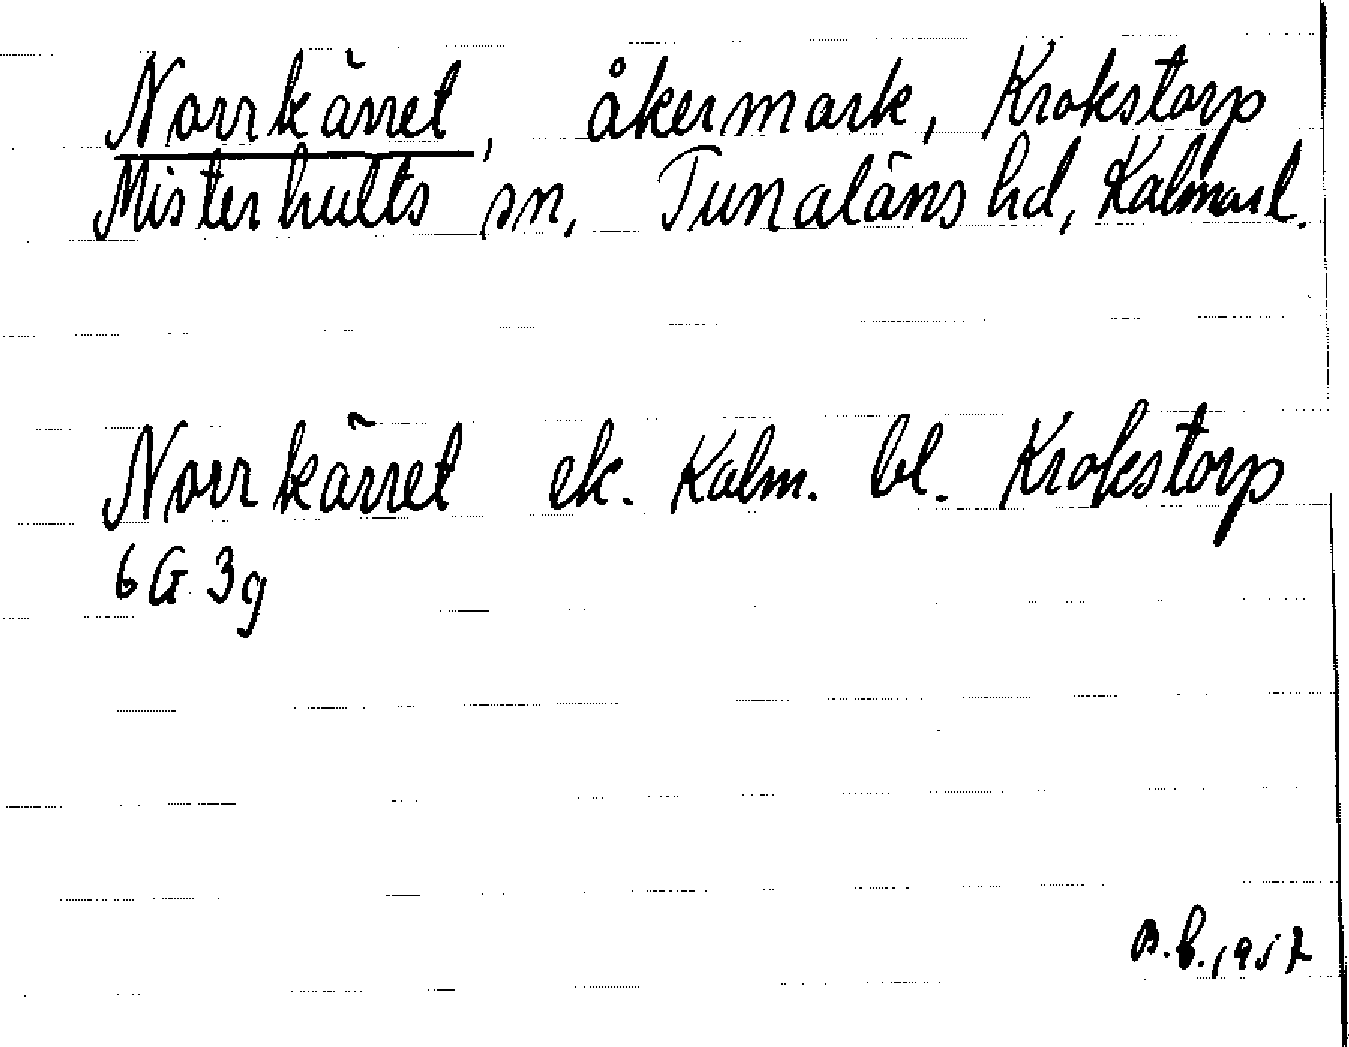 Norrkärret, åkermark, Krokstorp
Misterhults sn, Tunaläns hd, Kalmarl.
Norrkärret ek. Kalm. bl. Krokstorp
6G 3g
B.B. 1957